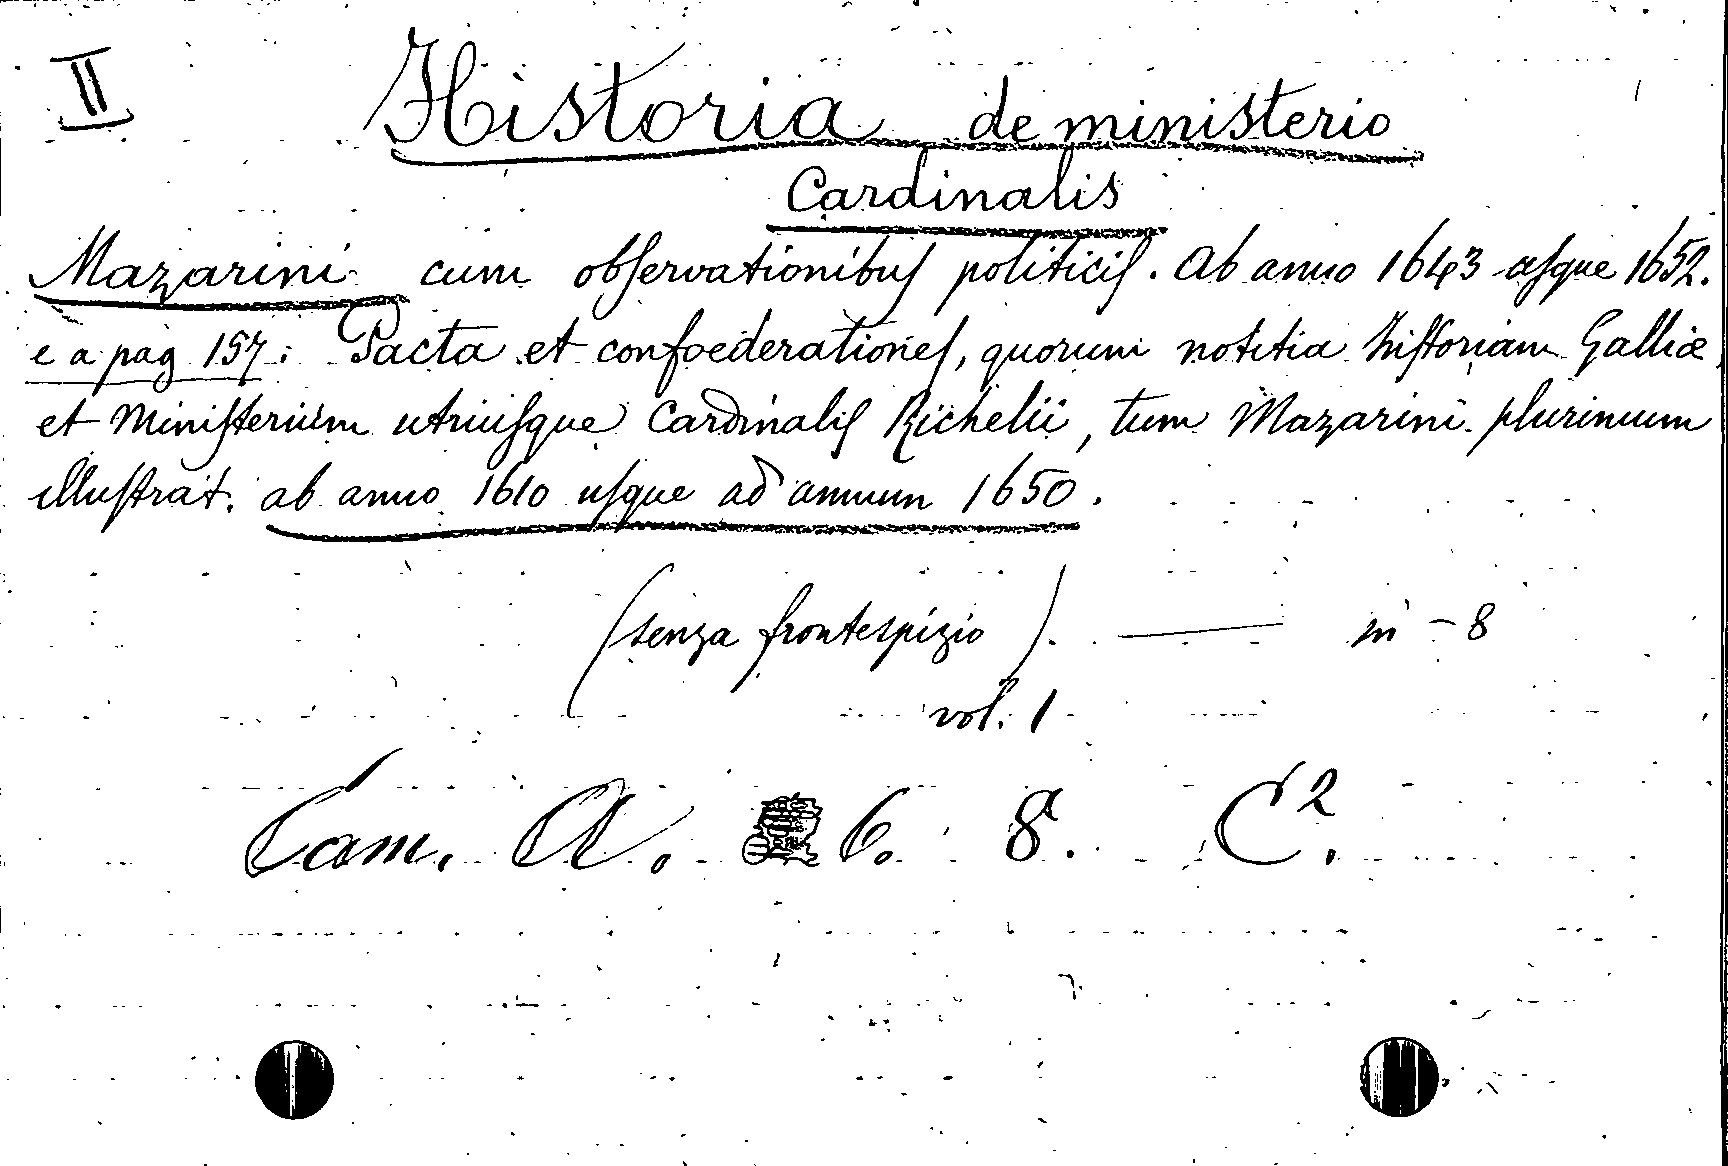 II
Historia de ministerio
Cardinalis
Mazarini cum obſervationibuſ politiciſ. Ab anno 1643 uſque 1652.
e a pag 157: Pacta et confoederationeſ, quorum notitia hiſtoriam Galliæ
et Miniſterium utriuſque Cardinaliſ Richelii, tum Mazarini plurimum
illuſtrat. ab anno 1610 uſque ad annum 1650.
(senza frontespizio). — in - 8
vol. 1
Cam. A. 6. 8. C².